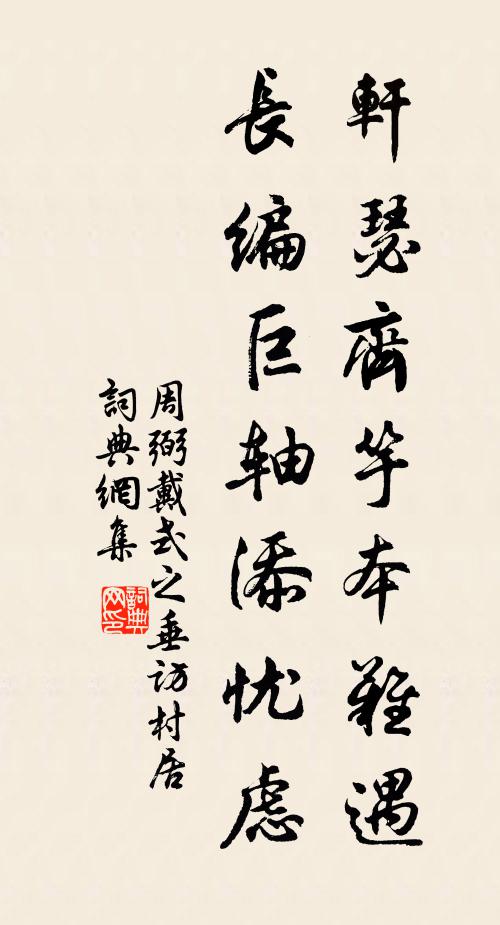 軒瑟齊竽本難遇
長编巨轴添忧慮
周弼戴式之垂访村居
詞典網集
詞典网印